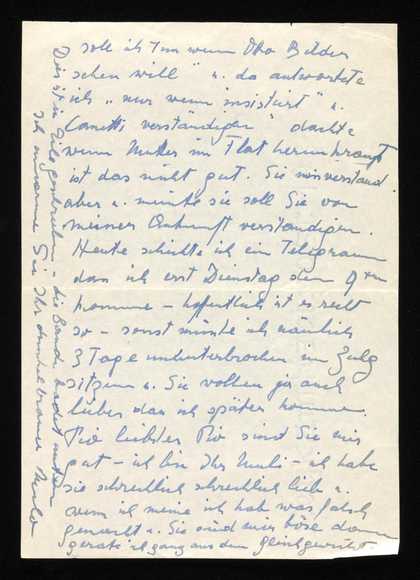 soll ich Ihnen wenn Otto Bilder
sehen will" u. da antwortete
ich "nur wenn insistiert" u.
Canetti verständigen" dachte
wenn Mutter im Flat herumkrampt
ist das nicht gut. Sie missverstand
aber u. meinte sie soll Sie von
meiner Ankunft verständigen.
Heute schickte ich ein Telegramm
dass ich erst Dienstag den 9ten
komme – hoffentlich ist es recht
so – sonst müsste ich nämlich
3 Tage ununterbrochen im Zug
sitzen u. Sie wollen ja auch
lieber dass ich später komme.
Pio liebster Pio sind Sie mir
gut – ich bin Ihr Muli – ich habe
sie schrecklich schrecklich lieb u.
wenn ich meine ich hab was falsch
gemacht u. Sie sind mir böse dann
gerate ich ganz aus dem Gleichgewicht.
Das ist in Eile geschrieben – die
ich umarme Sie Ihr